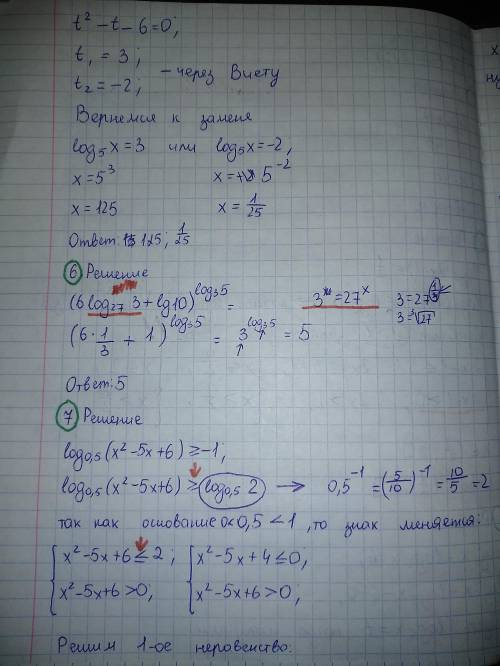 t² - t - 6 = 0;
t₁ = 3;
t₂ = -2; - через Виету
Вернемся к замене
log₅x = 3 или log₅x = -2,
x = 5³ x = 5⁻²
x = 125 x = 1/25
Ответ: 125; 1/25
6 Решение
(6 log₂₇ 3 + lg10)^log₃5 = 3 = 27ˣ 3 = 27^(1/3)
3 = ³√27
(6 · 1/3 + 1)^log₃5 = 3^log₃5 = 5
Ответ: 5
7 Решение
log₀,₅(x² - 5x + 6) ≥ -1;
log₀,₅(x² - 5x + 6) ≥ log₀,₅ 2 → 0,5⁻¹ = (5/10)⁻¹ = 10/5 = 2
так как основание 0,5 < 1, то знак меняется:
{ x² - 5x + 6 ≤ 2; { x² - 5x + 4 ≤ 0,
x² - 5x + 6 > 0; x² - 5x + 6 > 0,
Решим 1-ое неровенство: